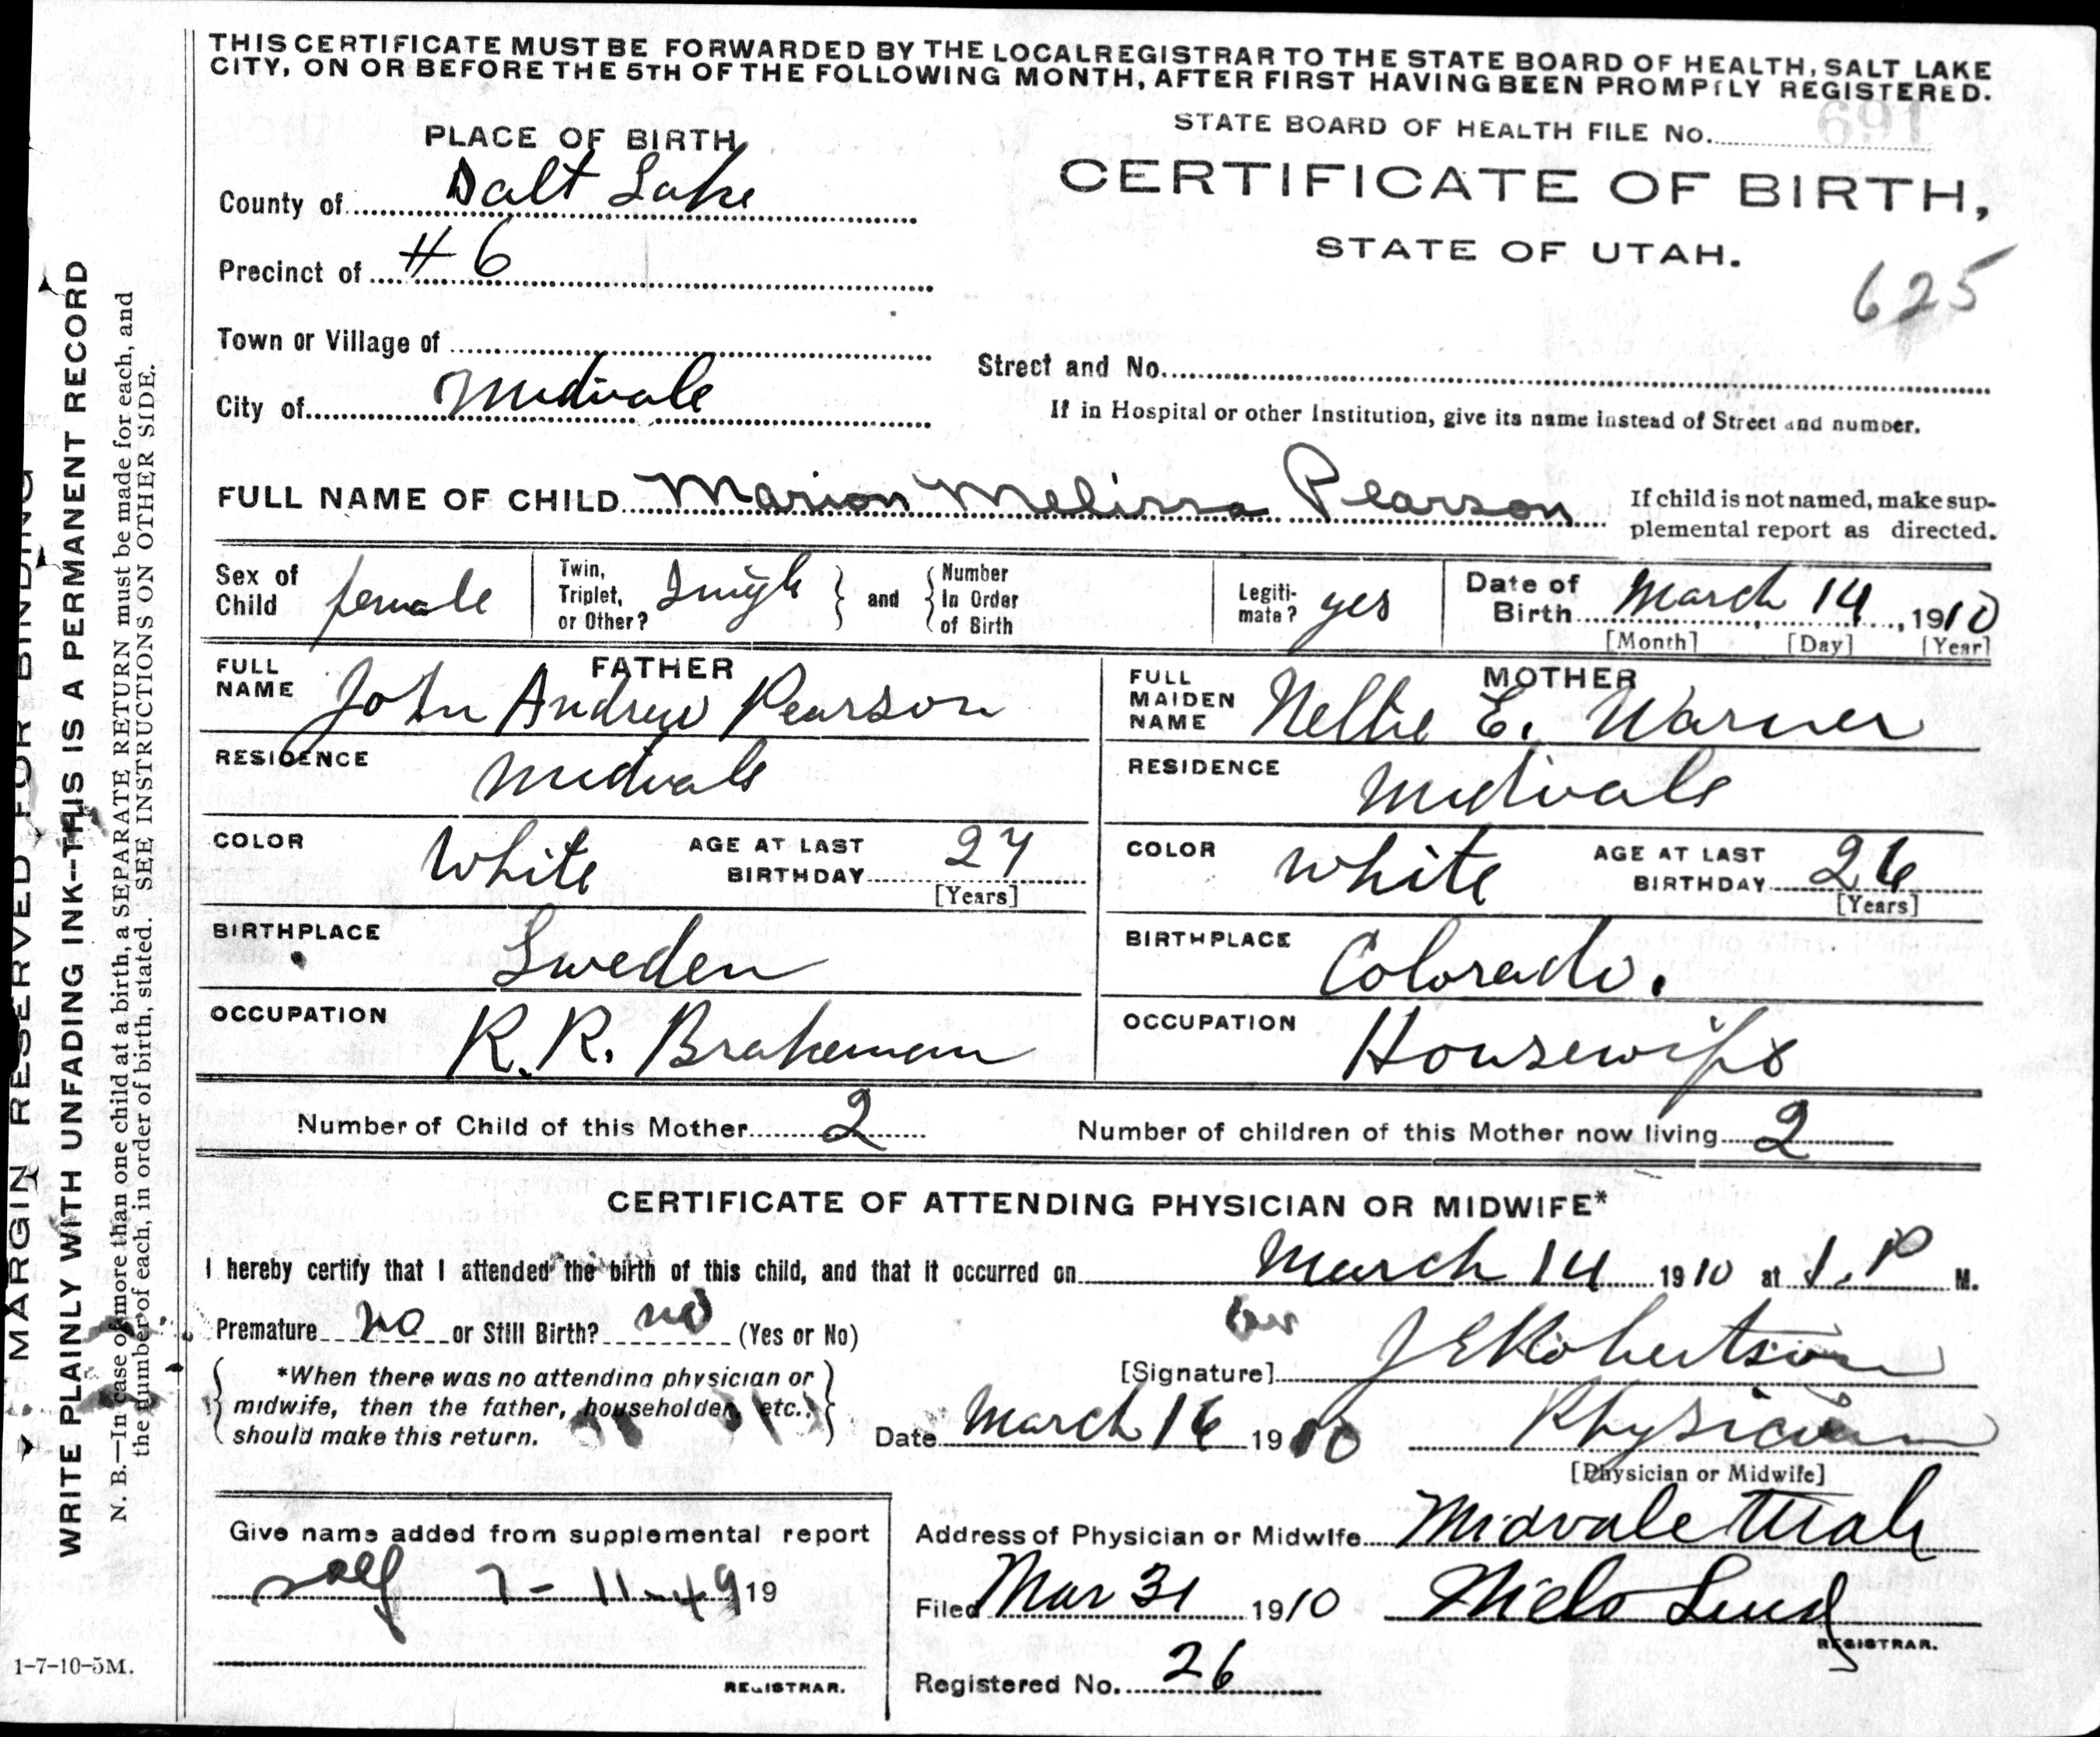 THIS CERTIFICATE MUST BE FORWARDED BY THE LOCAL REGISTRAR TO THE STATE BOARD OF HEALTH, SALT LAKE
CITY, ON OR BEFORE THE 5TH OF THE FOLLOWING MONTH, AFTER FIRST HAVING BEEN PROMPTLY REGISTERED.
STATE BOARD OF HEALTH FILE No. 691
PLACE OF BIRTH
CERTIFICATE OF BIRTH,
STATE OF UTAH.
625
County of Salt Lake
Precinct of # 6
Town or Village of
Street and No.
City of Midvale
If in Hospital or other Institution, give its name instead of Street and number.
FULL NAME OF CHILD Marion Melissa Pearson
If child is not named, make sup-
plemental report as directed.
Sex of Child female
Twin, Triplet, or Other? Single
and Number In Order of Birth
Legiti-mate? yes
Date of Birth March 14, 1910
[Month] [Day] [Year]
FATHER
FULL NAME John Andrew Pearson
RESIDENCE Midvale
COLOR White AGE AT LAST BIRTHDAY 27
[Years]
BIRTHPLACE Sweden
OCCUPATION R.R. Brakeman
MOTHER
FULL MAIDEN NAME Nellie E. Warner
RESIDENCE Midvale
COLOR White AGE AT LAST BIRTHDAY 26
[Years]
BIRTHPLACE Colorado.
OCCUPATION Housewife
Number of Child of this Mother 2
Number of children of this Mother now living 2
CERTIFICATE OF ATTENDING PHYSICIAN OR MIDWIFE*
I hereby certify that I attended the birth of this child, and that it occurred on March 14 1910 at 1. P M.
Premature no or Still Birth? no (Yes or No)
*When there was no attending physician or
midwife, then the father, householder, etc.,
should make this return.
[Signature] J E Robertson
Date March 16 1910 Physician
[Physician or Midwife]
Give name added from supplemental report
self 7-11-49 19
REGISTRAR.
Address of Physician or Midwife Midvale Utah
Filed Mar 31 1910 Niels Lind
REGISTRAR.
Registered No. 26
1-7-10-5M.
MARGIN RESERVED FOR BINDING
WRITE PLAINLY WITH UNFADING INK--THIS IS A PERMANENT RECORD
N. B.—In case of more than one child at a birth, a SEPARATE RETURN must be made for each, and
the number of each, in order of birth, stated. SEE INSTRUCTIONS ON OTHER SIDE.